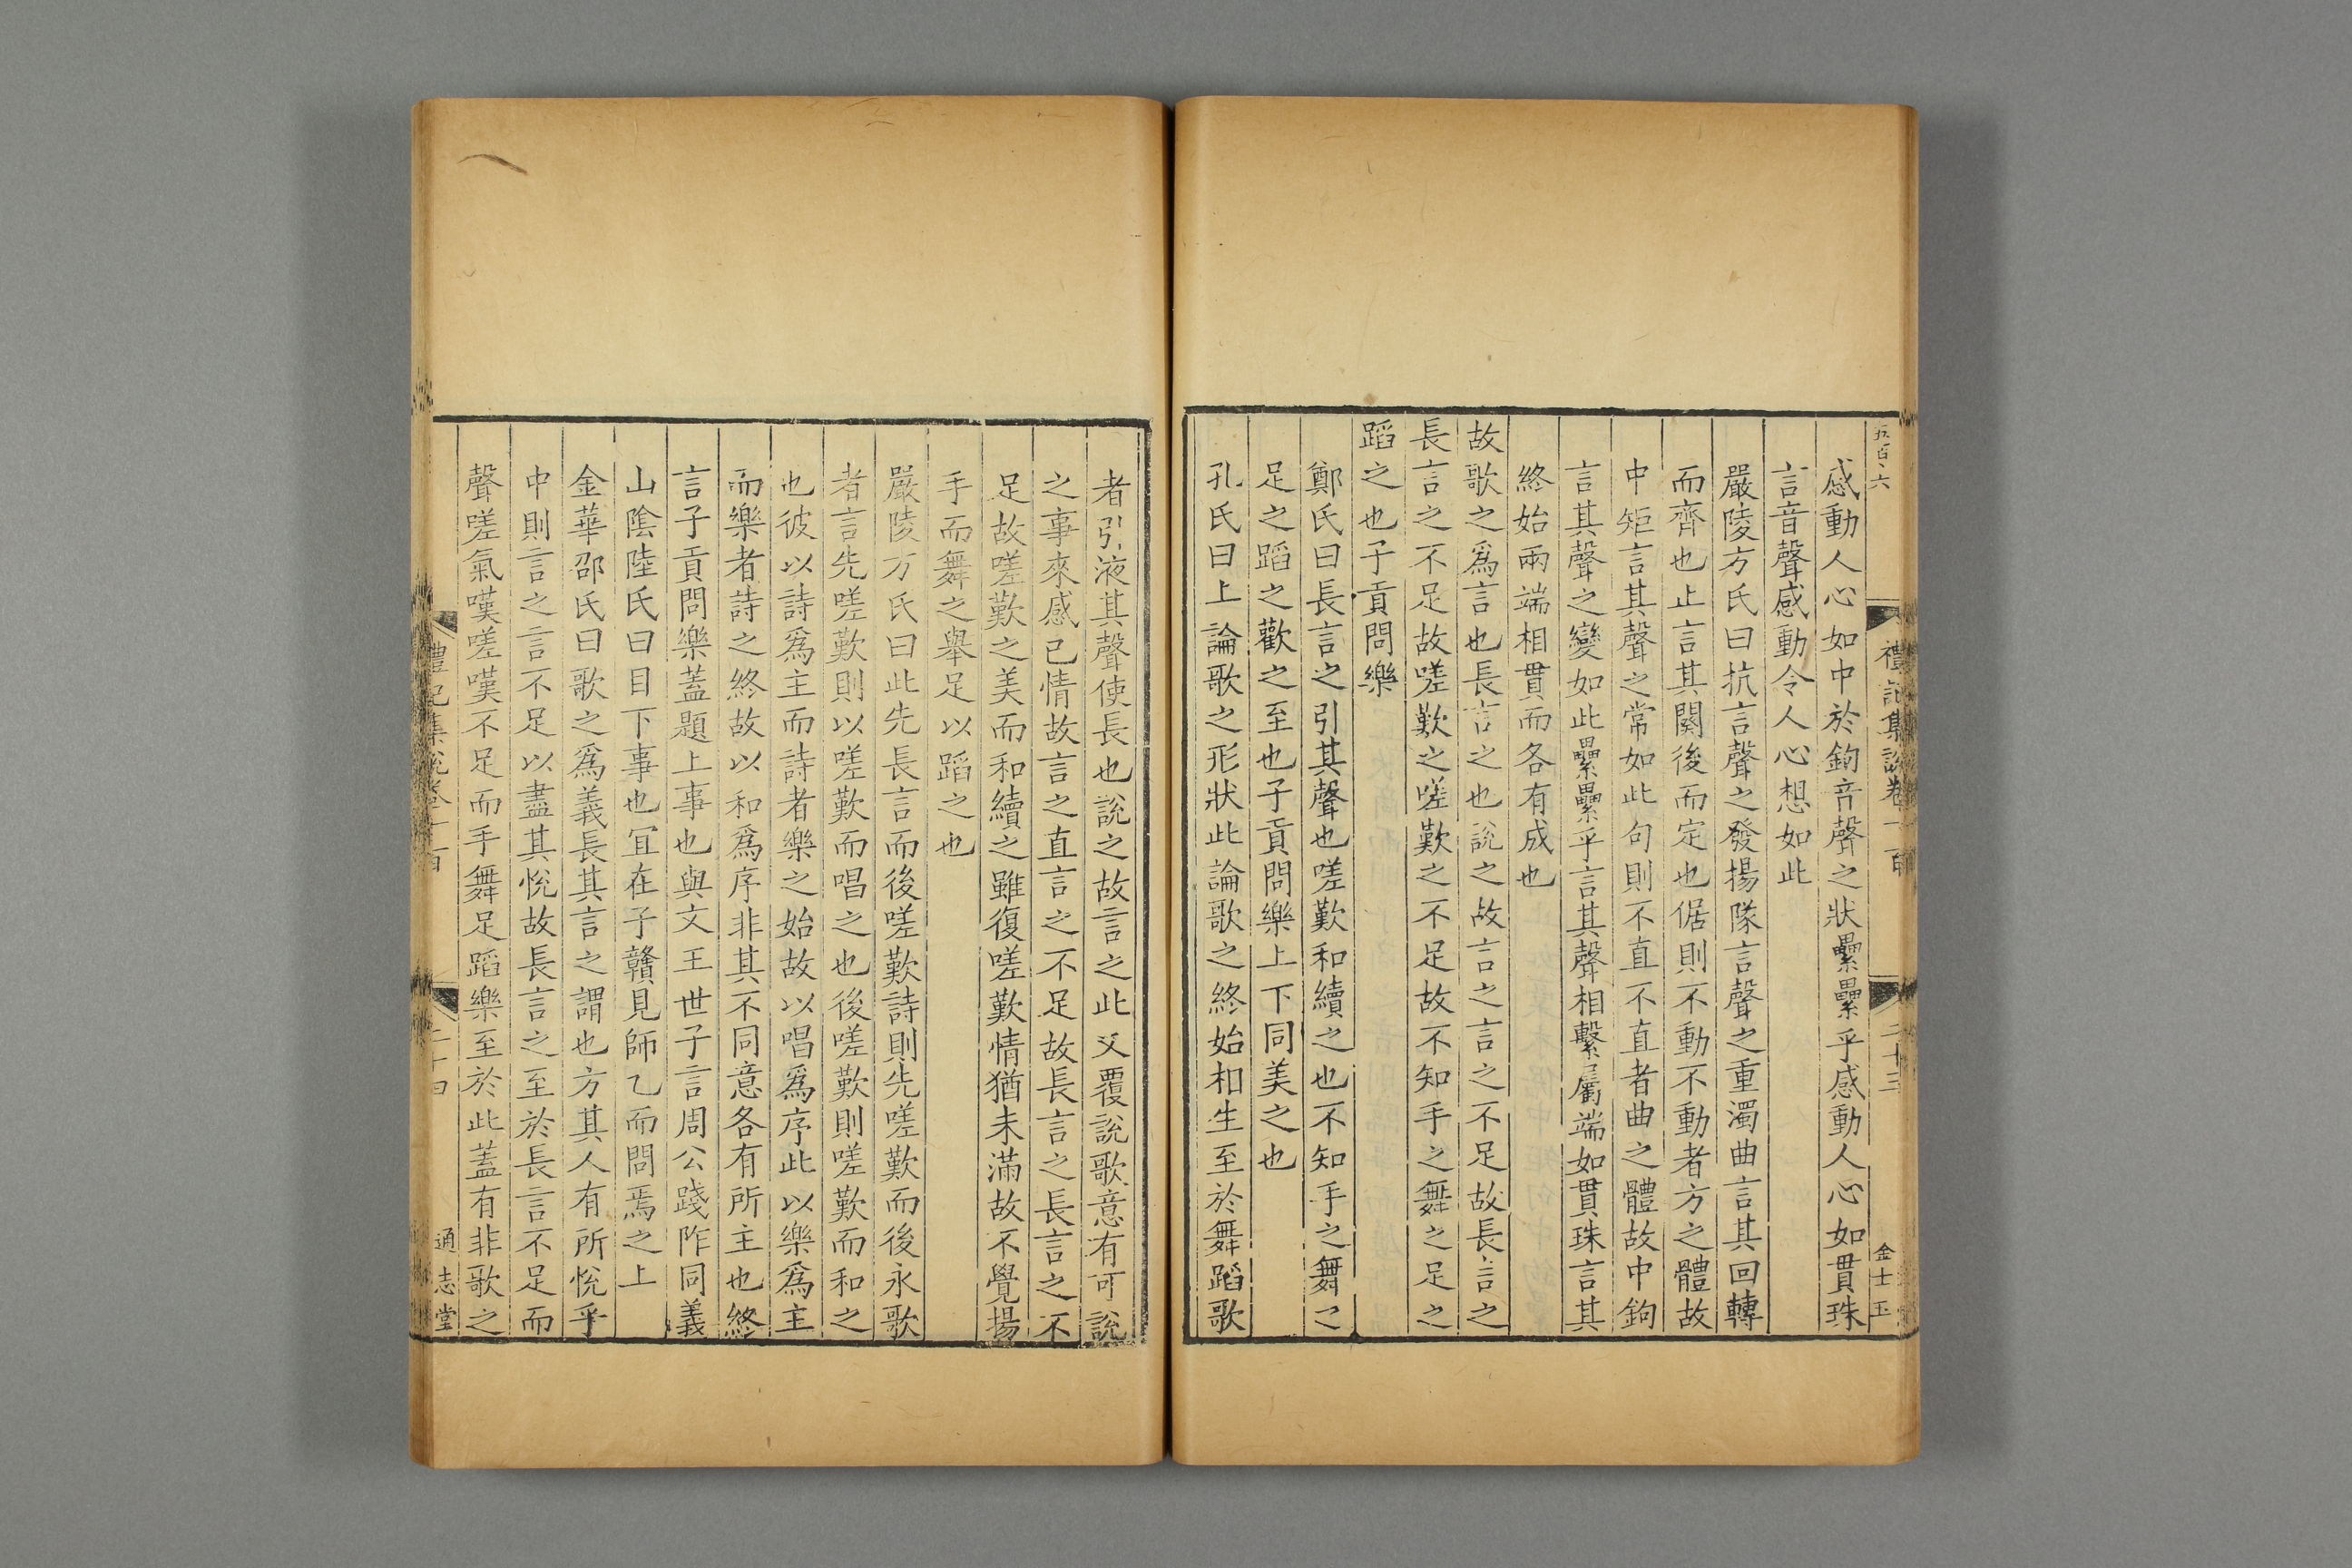 五百六
禮記集說卷一百
二十三
金士玉
感動人心如中於鉤音聲之狀纍纍乎感動人心如貫珠
言音聲感動令人心想如此
嚴陵方氏曰抗言聲之發揚隊言聲之重濁曲言其回轉
而齊也止言其闋後而定也倨則不動不動者方之體故
中矩言其聲之常如此句則不直不直者曲之體故中鉤
言其聲之變如此纍纍乎言其聲相繫屬端如貫珠言其
終始兩端相貫而各有成也
故歌之爲言也長言之也說之故言之言之不足故長言之
長言之不足故嗟歎之嗟歎之不足故不知手之舞之足之
蹈之也子貢問樂
鄭氏曰長言之引其聲也嗟歎和續之也不知手之舞之
足之蹈之歡之至也子貢問樂上下同美之也
孔氏曰上論歌之形狀此論歌之終始相生至於舞蹈歌
者引液其聲使長也說之故言之此又覆說歌意有可說
之事來感己情故言之直言之不足故長言之長言之不
足故嗟歎之美而和續之雖復嗟歎情猶未滿故不覺揚
手而舞之舉足以蹈之也
嚴陵方氏曰此先長言而後嗟歎詩則先嗟歎而後永歌
者言先嗟歎則以嗟歎而唱之也後嗟歎則嗟歎而和之
也彼以詩爲主而詩者樂之始故以唱爲序此以樂爲主
而樂者詩之終故以和爲序非其不同意各有所主也終
言子貢問樂蓋題上事也與文王世子言周公踐阼同義
山陰陸氏曰目下事也宜在子贛見師乙而問焉之上
金華邵氏曰歌之爲義長其言之謂也方其人有所悅乎
中則言之言不足以盡其悅故長言之至於長言不足而
聲嗟氣嘆嗟嘆不足而手舞足蹈樂至於此蓋有非歌之
禮記集說卷一百
二十四
通志堂